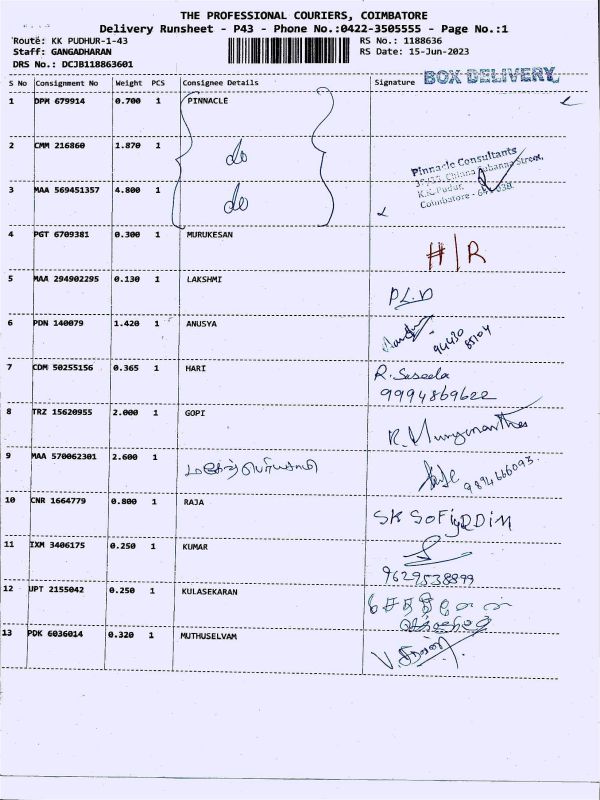 THE PROFESSIONAL COURIERS, COIMBATORE
Delivery Runsheet - P43 - Phone No.:0422-3505555 - Page No.:1
Route: KK PUDHUR-1-43 RS No.: 1188636
Staff: GANGADHARAN RS Date: 15-Jun-2023
DRS No.: DCJB118863601
S No Consignment No Weight PCS Consignee Details Signature BOX DELIVERY
1 DPM 679914 0.700 1 PINNACLE
2 CMM 216860 1.870 1 do
Pinnacle Consultants
3 MAA 569451357 4.800 1 do
K.K. Pudur,
Coimbatore - 641 038.
4 PGT 6709381 0.300 1 MURUKESAN H/R
5 MAA 294902295 0.130 1 LAKSHMI P.L.D
6 PDN 140079 1.420 1 ANUSYA
94430
85104
7 CDM 50255156 0.365 1 HARI R. Saseela
9994869622
8 TRZ 15620955 2.000 1 GOPI
9 MAA 570062301 2.600 1 9894666093
10 CNR 1664779 0.800 1 RAJA SK SOFIYDDIN
11 IXM 3406175 0.250 1 KUMAR
9629538899
12 UPT 2155042 0.250 1 KULASEKARAN
13 PDK 6036014 0.320 1 MUTHUSELVAM